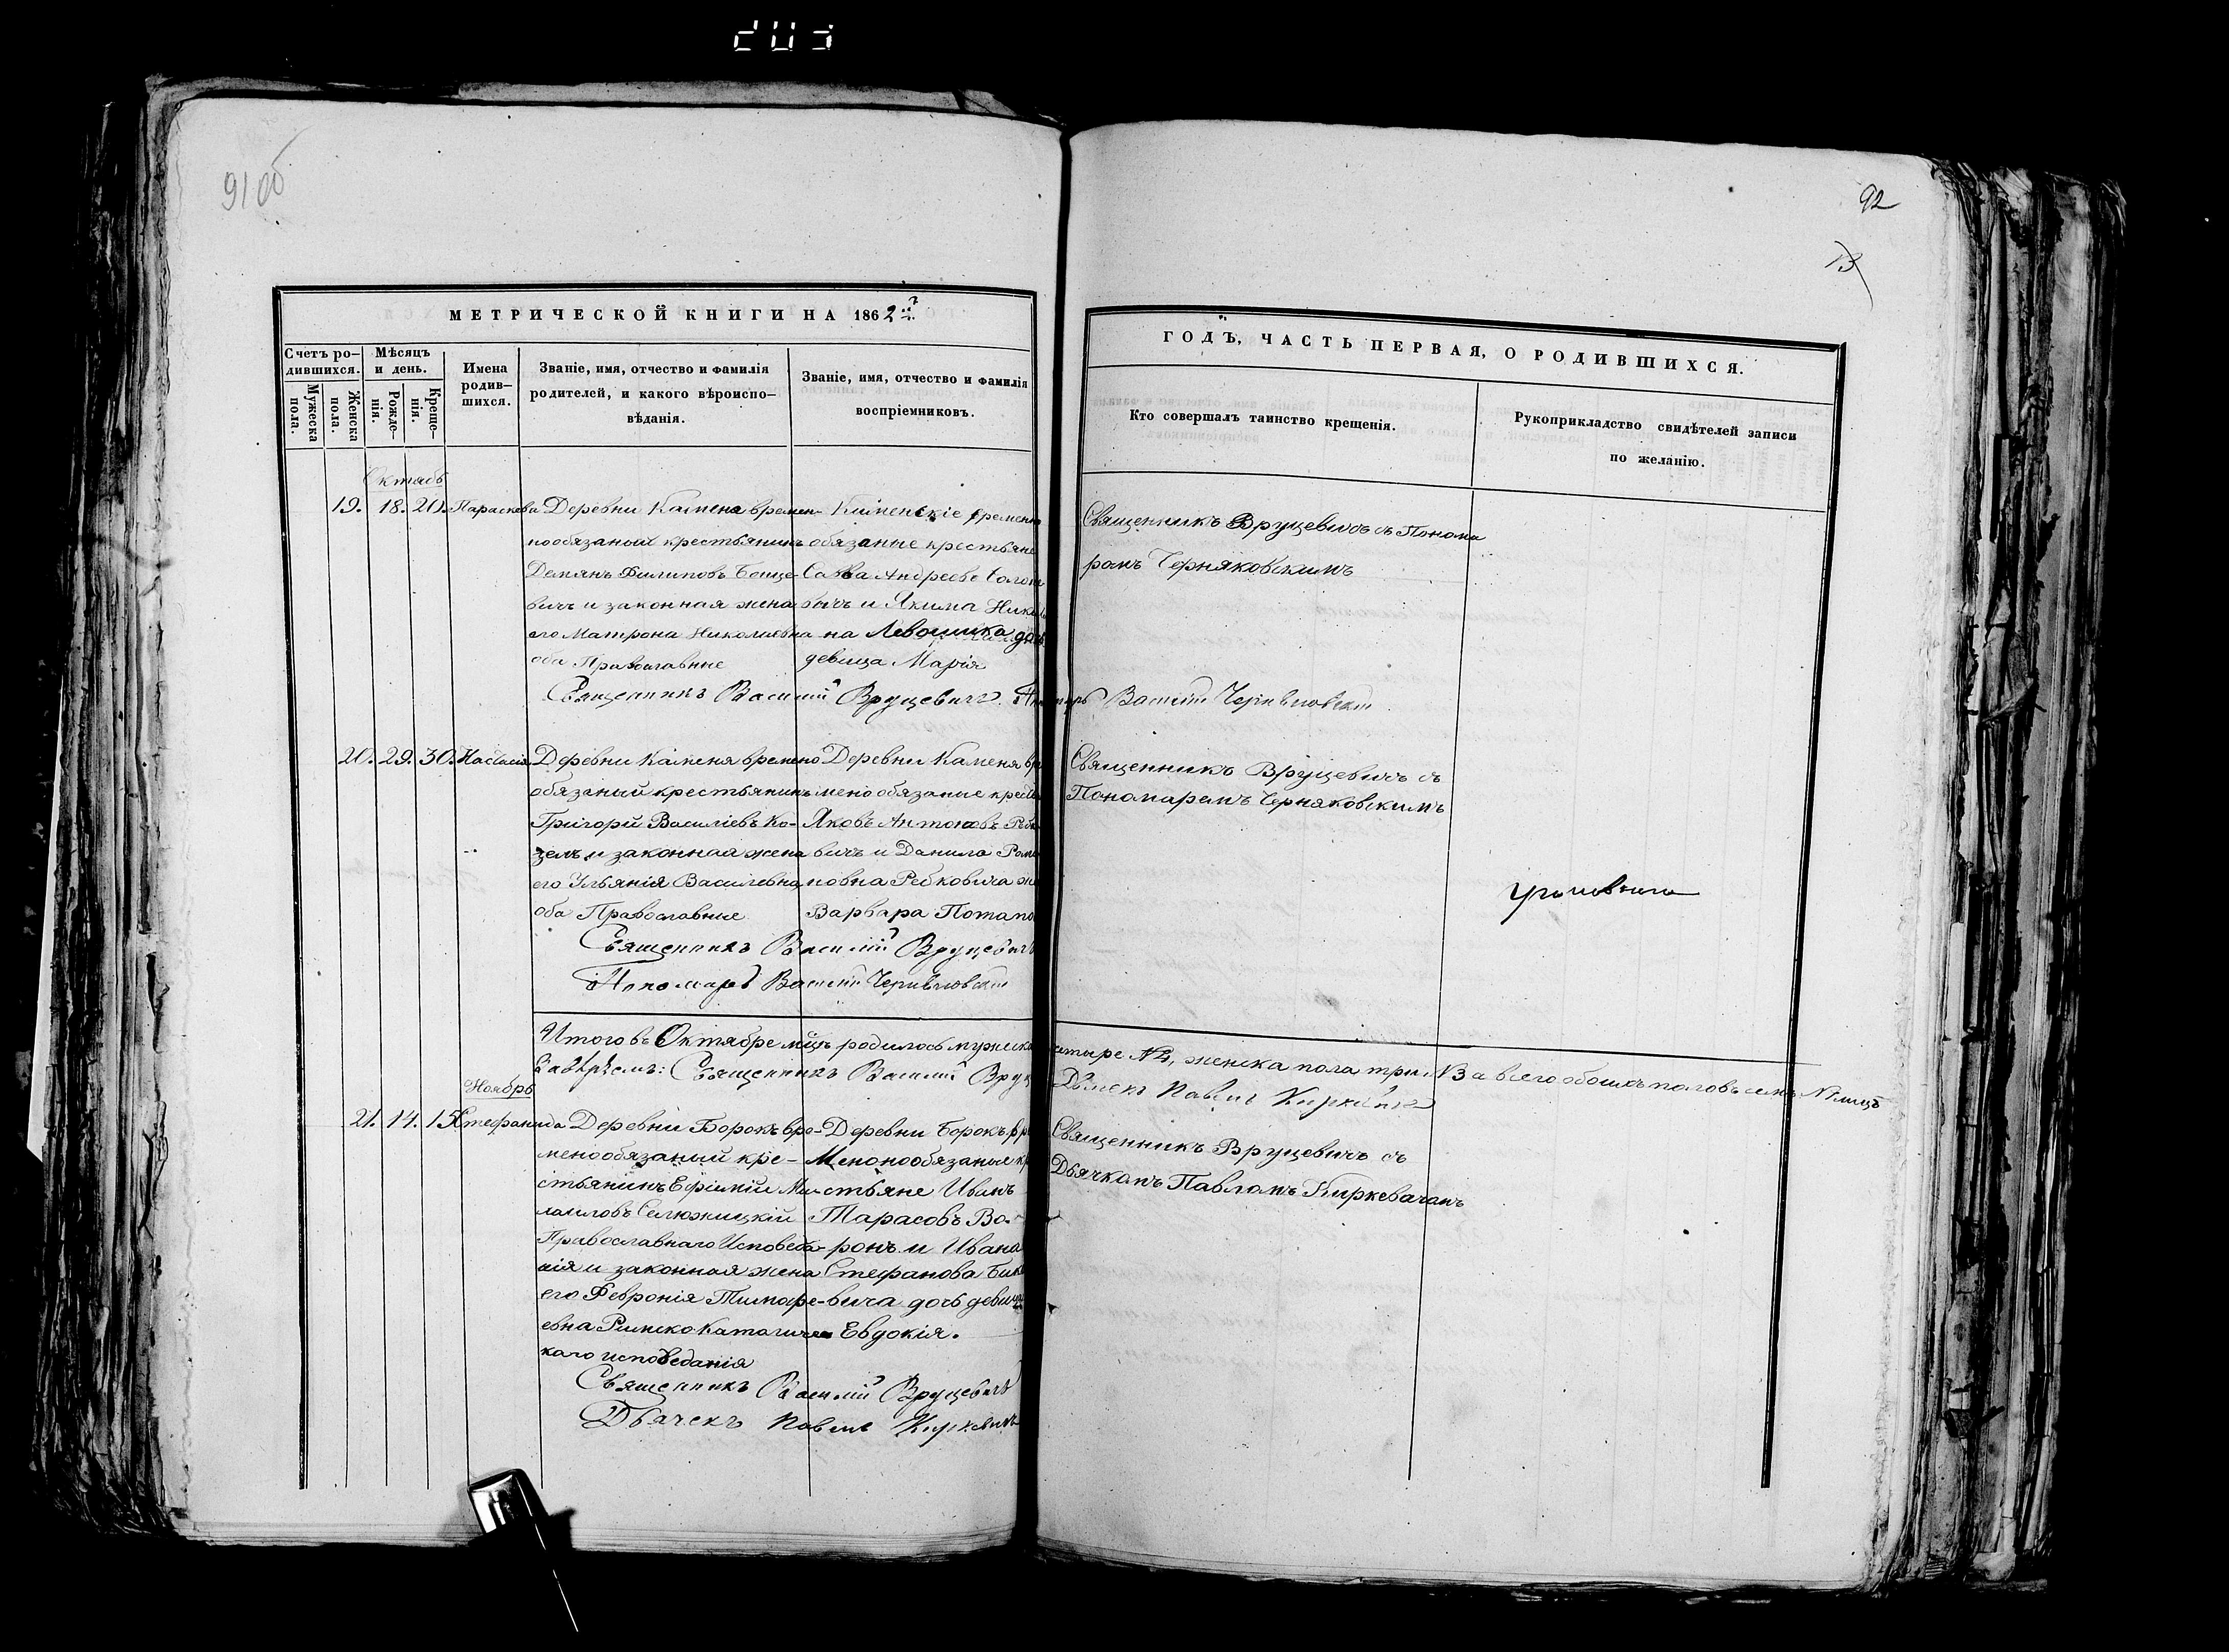 91 об
92
13
МЕТРИЧЕСКОЙ КНИГИ НА 1862
ГОДЪ, ЧАСТЬ ПЕРВАЯ, О РОДИВШИХСЯ.
Счетъ ро-
дившихся.
Мужеска
пола.
Женска
пола.
Мѣсяцъ
и день.
Рожде-
нія.
Креще-
нія.
Имена
родив-
шихся.
Званіе, имя, отчество и фамилія
родителей, и какого вѣроиспо-
вѣданія.
Званіе, имя, отчество и фамилія
воспріемниковъ.
Кто совершалъ таинство крещенія.
Рукоприкладство свидѣтелей записи
по желанію.
Октябь
19. 18. 20. Параскева
Деревни Камена времен-
нообязаный крестьянинъ
Демянъ Филиповъ
вичъ и законная жена
его Матрона Николаевна
оба Православные
Каменскіе временно
обязанне крестьяне
Савва Андреевъ
вичъ и Якима
на Левошика дочь
девица Марія
Священникъ Врущевичъ съ Понома
ромъ Черняковскимъ
Священникъ Василій Врущевичъ. Василій
20. 29. 30. Настасія
Деревни Каменя времено
обязаный крестьянинъ
Григорій Василіевъ Ко-
зелъ и законная жена
его Ульянія Василевна
оба Православные
Деревни Каменя вре
мено обязаные крестья
Яковъ Антоновъ
вичъ и Данила Рома
новна Ребковича же
Варвара Потапо
Священникъ Врущевичъ съ
Пономаремъ Черняковскимъ
Священникъ Василій Врущевичъ
Пономарь Василій
Итого въ Октябре мцѣ родилось мужска
четыре №4, женска пола три №3 а всего обоихъ половъ семь №7 лицъ
Священникъ Василій Врущ
Павелъ
Ноябрь
21. 14. 15. Стефанида
Деревни Борокъ вре-
менообязаный кре-
стьянинъ Ефимій
Православнаго Исповеда-
нія и законная жена
его Февронія Тимофе-
евна Римско Католичес
каго исповеданія
Деревни Борокъ вре
менонообязаные кре
стьяне Иванъ
Тарасовъ Во-
ронъ и Ивана
Стефанова
вича дочь девица
Евдокія.
Священникъ Врущевичъ съ
Дьячкомъ Павломъ Киркевичомъ
Священникъ Василій Врущевичъ
Дьячекъ Павелъ Киркевичъ